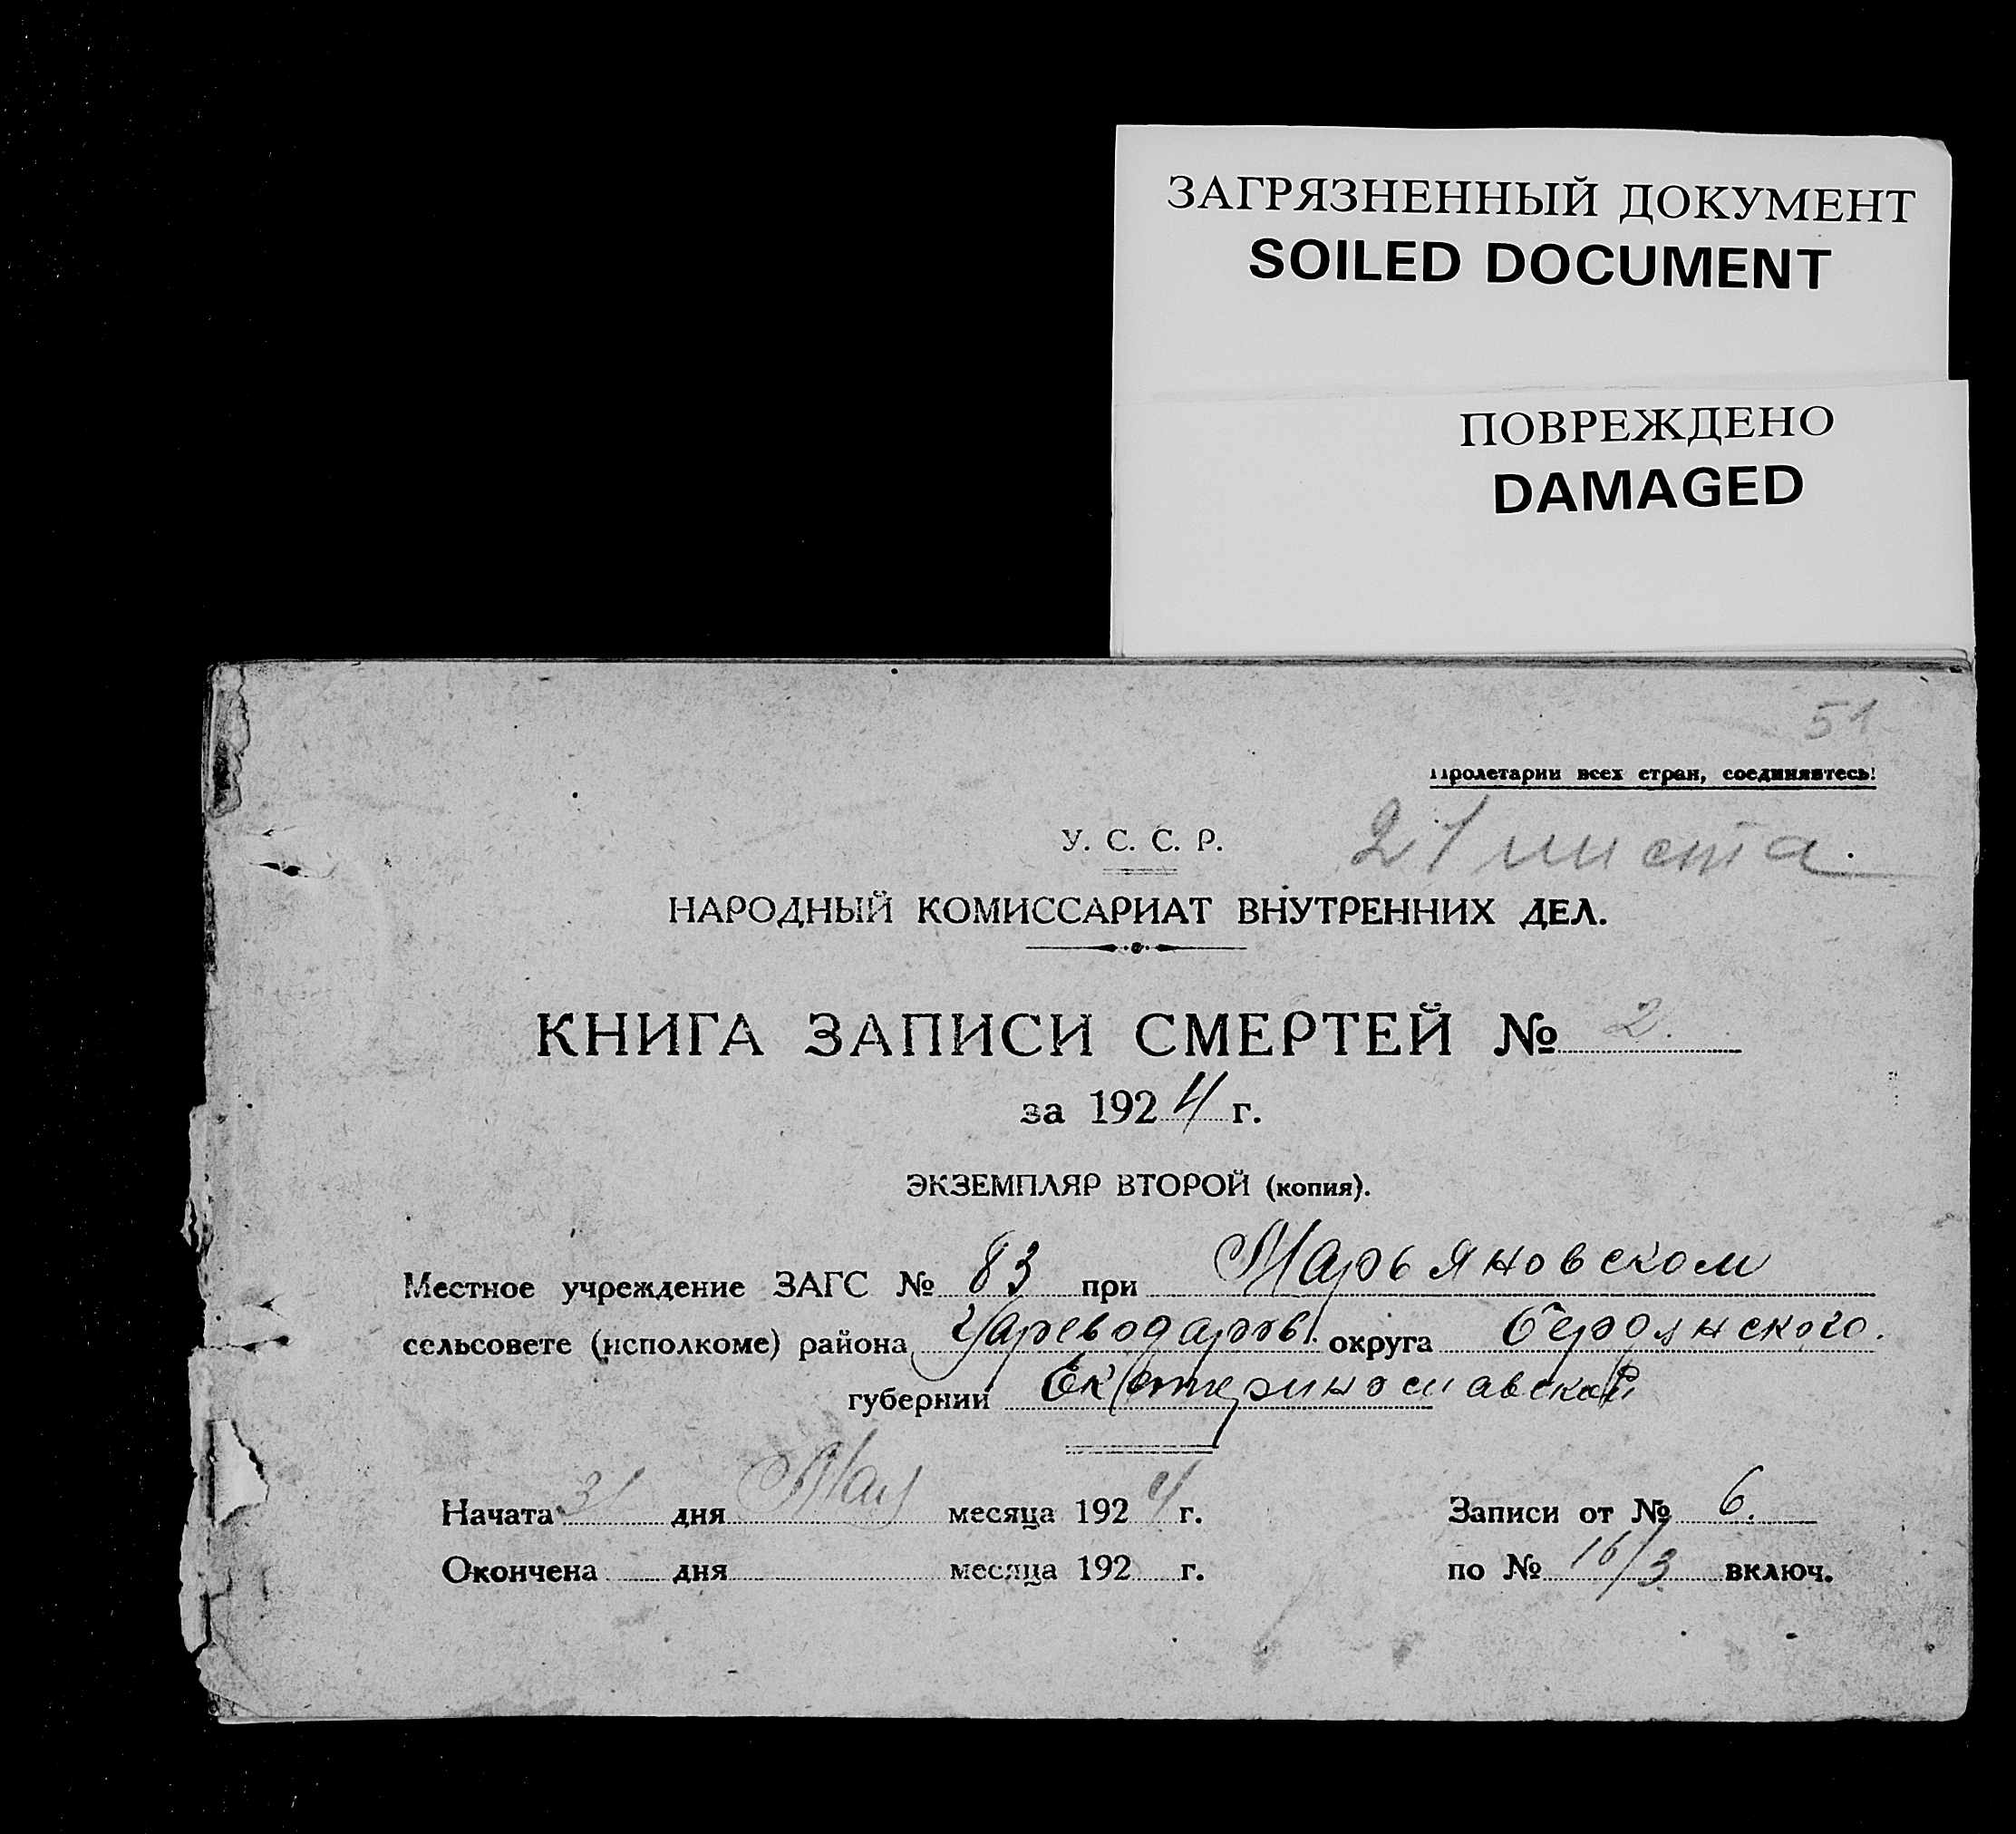 ЗАГРЯЗНЕННЫЙ ДОКУМЕНТ
SOILED DOCUMENT
ПОВРЕЖДЕНО
DAMAGED
51
Пролетарии всех стран, соединяйтесь!
У. С. С. Р.
21 листа.
НАРОДНЫЙ КОМИССАРИАТ ВНУТРЕННИХ ДЕЛ.
КНИГА ЗАПИСИ СМЕРТЕЙ № 2.
за 1924 г.
ЭКЗЕМПЛЯР ВТОРОЙ (копия).
Местное учреждение ЗАГС № 83 при Марьяновском
сельсовете (исполкоме) района Цареводаров. округа Бердянского.
губернии Екатеринославской
Начата 31 дня Мая месяца 1924 г. Записи от № 6.
Окончена дня месяца 192 г. по № 16/3 включ.